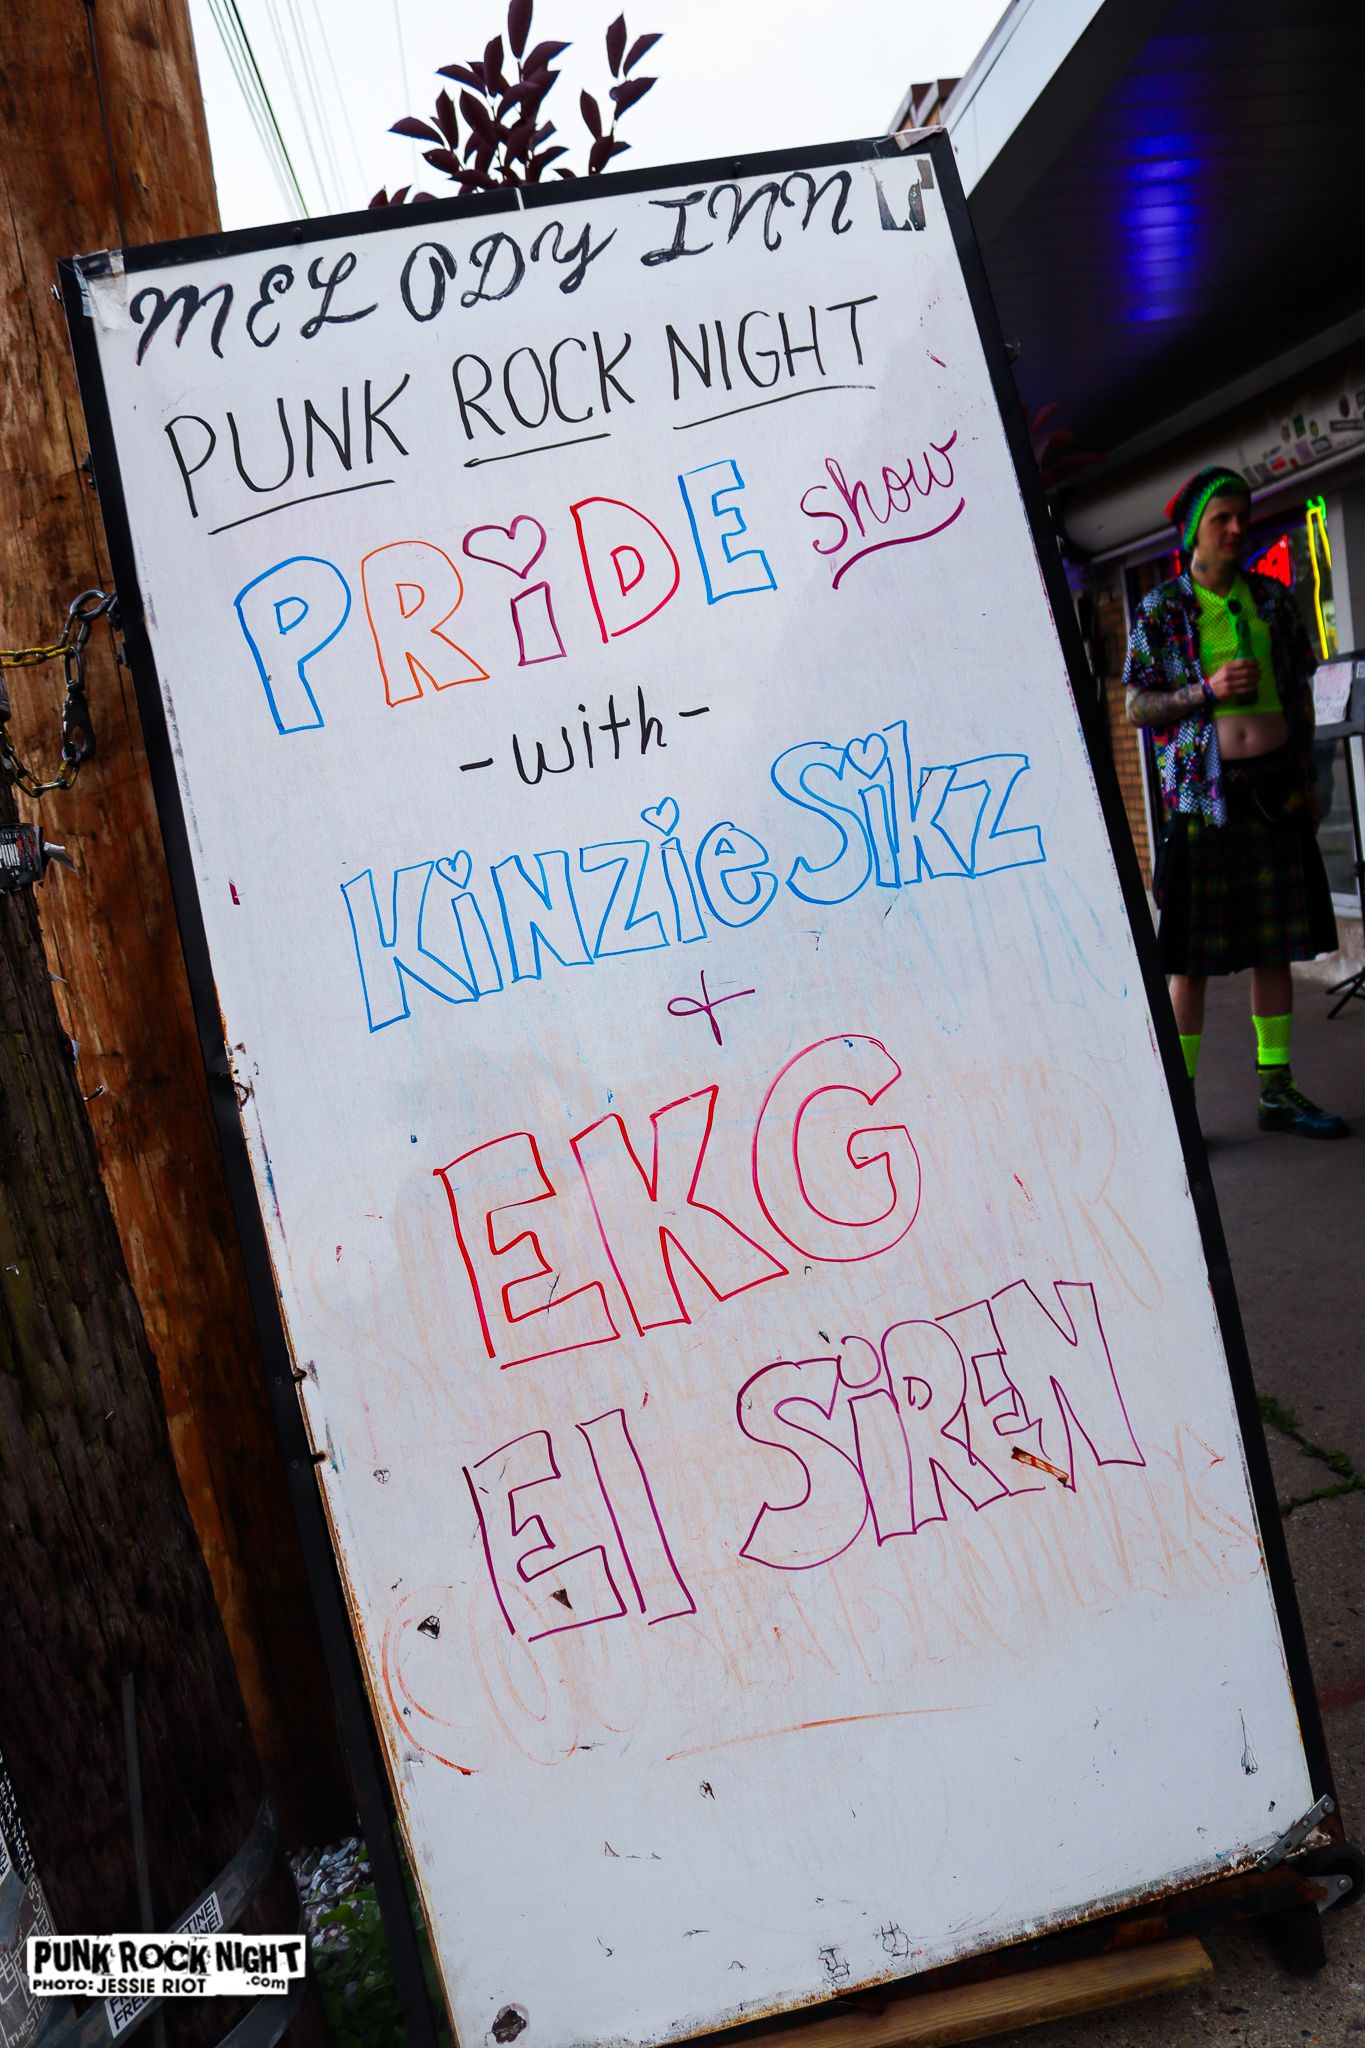 MELODY INN
PUNK ROCK NIGHT
PRiDE show
-with-
KiNZie Sikz
+
EKG
El SiREN
PUNK ROCK NIGHT
.com
PHOTO: JESSIE RIOT